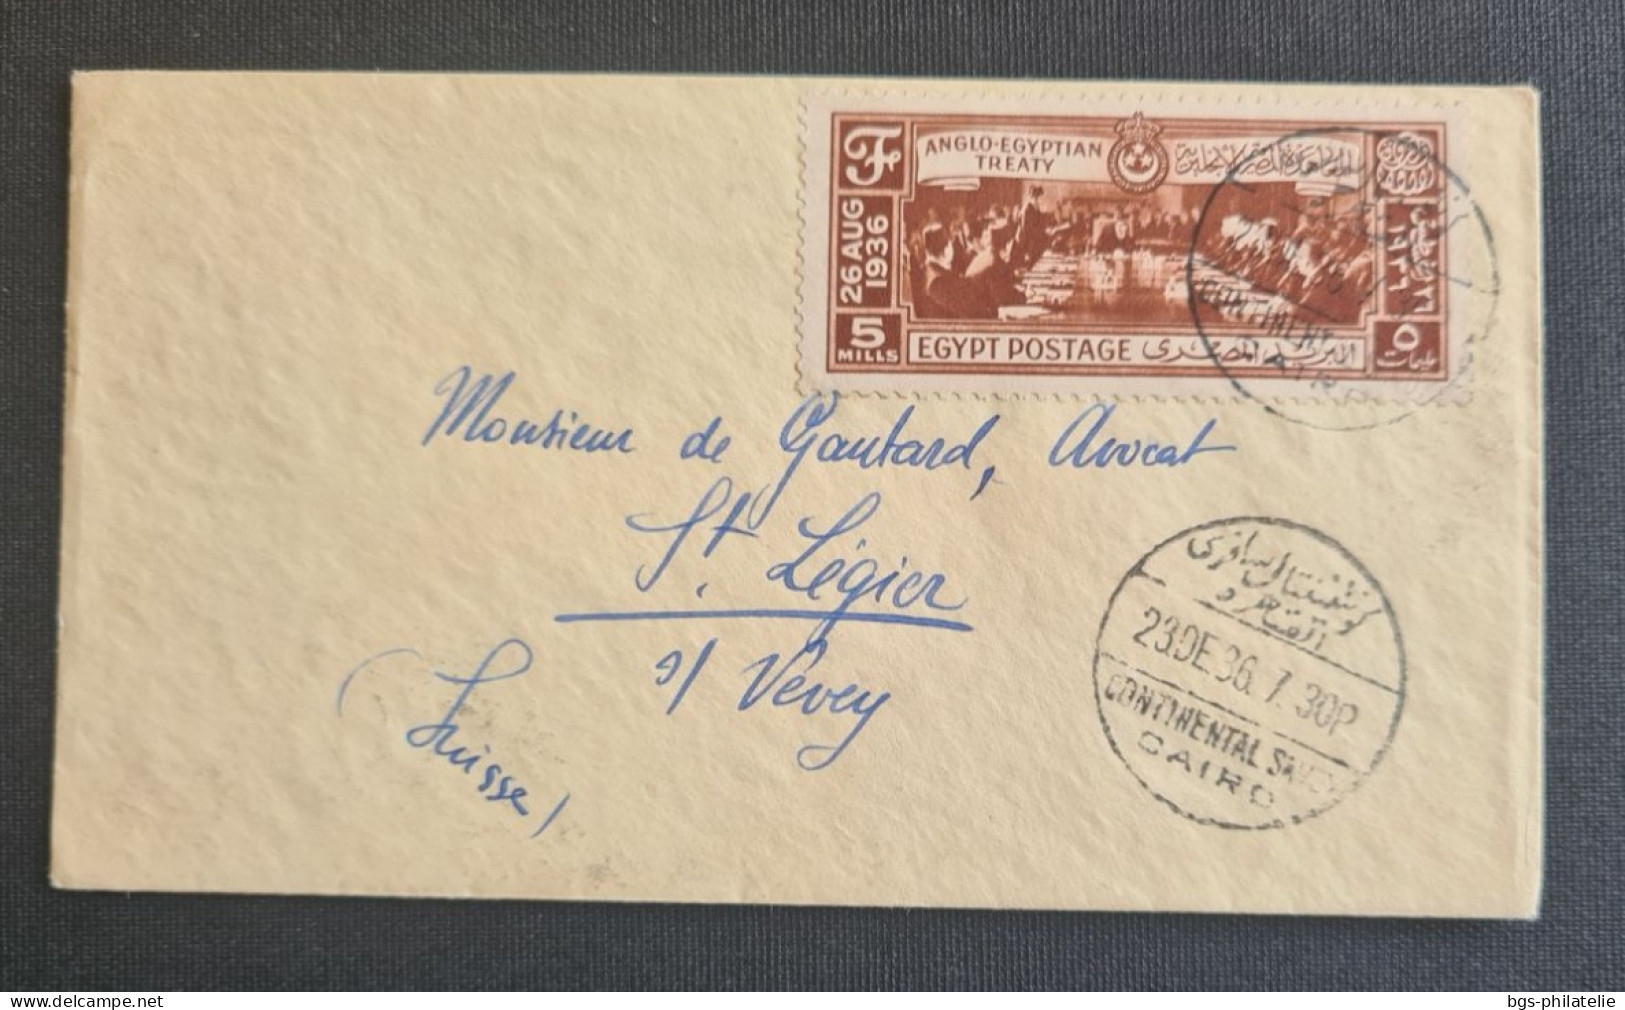 ANGLO-EGYPTIAN
TREATY
26 AUG
1936
5
MILLS
EGYPT POSTAGE
البريد المصرى
٥
مليمات
CONTINENTAL
CAIRO
Monsieur de Gautard, Avocat
St. Légier
s/ Vevey
(Suisse)
القاهرة
23.DE.36.7.30P
CONTINENTAL SAVOY
CAIRO
www.delcampe.net
bgs-philatelie